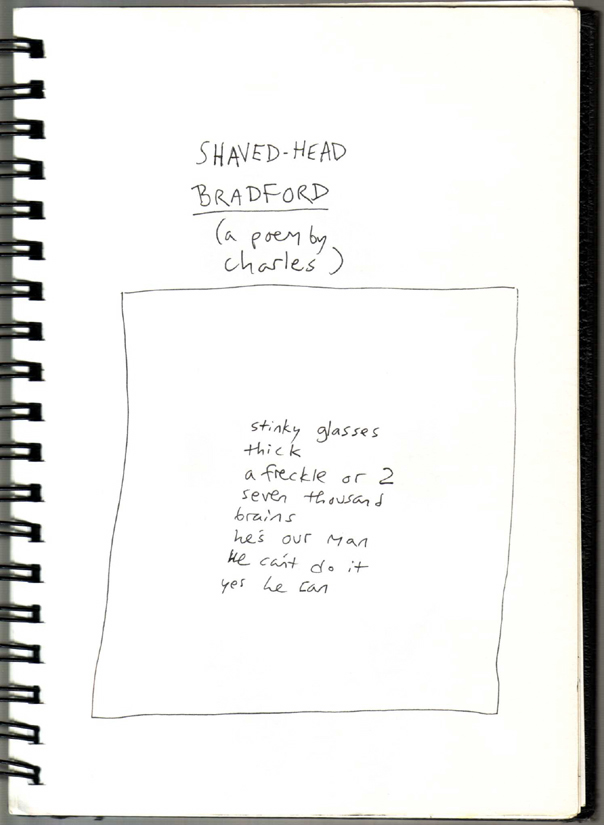 SHAVED-HEAD
BRADFORD
(a poem by
charles)
stinky glasses
thick
a freckle or 2
seven thousand
brains
he's our man
He can't do it
yes he can